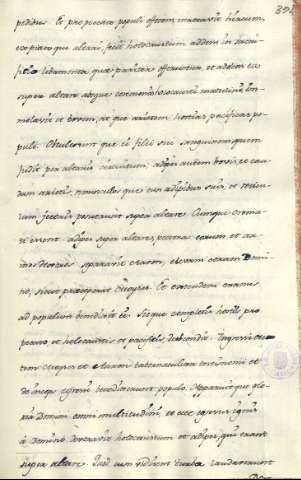 391
peccatis. Et pro peccato populi offerens mactavit hircum,
expiatoque altari fecit holocaustum addens in sacri-
ficio libamenta que pariter offeruntur, et adolens ea
super altare absque ceremoniis holocausti matutini. Im-
molavit et bovem, atque arietem hostias pacificas po-
puli. Obtulerunt que ei filii sui sanguinem quem
fudit per altaris circuitum. Adipem autem bovis, et cau-
dam arietis, renunculos que cum adipibus suis, et reticu-
lum jecoris posuerunt super altare. Cumque crema-
ti essent adipes super altare, pectora eorum et ar-
mos dextros separavit Aaron, elevans coram Domi-
no, sicut preceperat Moyses. Et extendens manus
ad populum benedixit ei. Sicque completis hostiis pro
peccato et holocaustis, et pacificis, descendit. Ingressi au-
tem Moyses et Aaron tabernaculum testimonii et
deinceps egressi benedixerunt populo. Apparuit que glo-
ria Domini omni multitudini, et ecce egressus ignis
a Domino devoravit holocaustum et adipes qui erant
super altare. Quod cum vidissent turbe laudaverunt
Do-